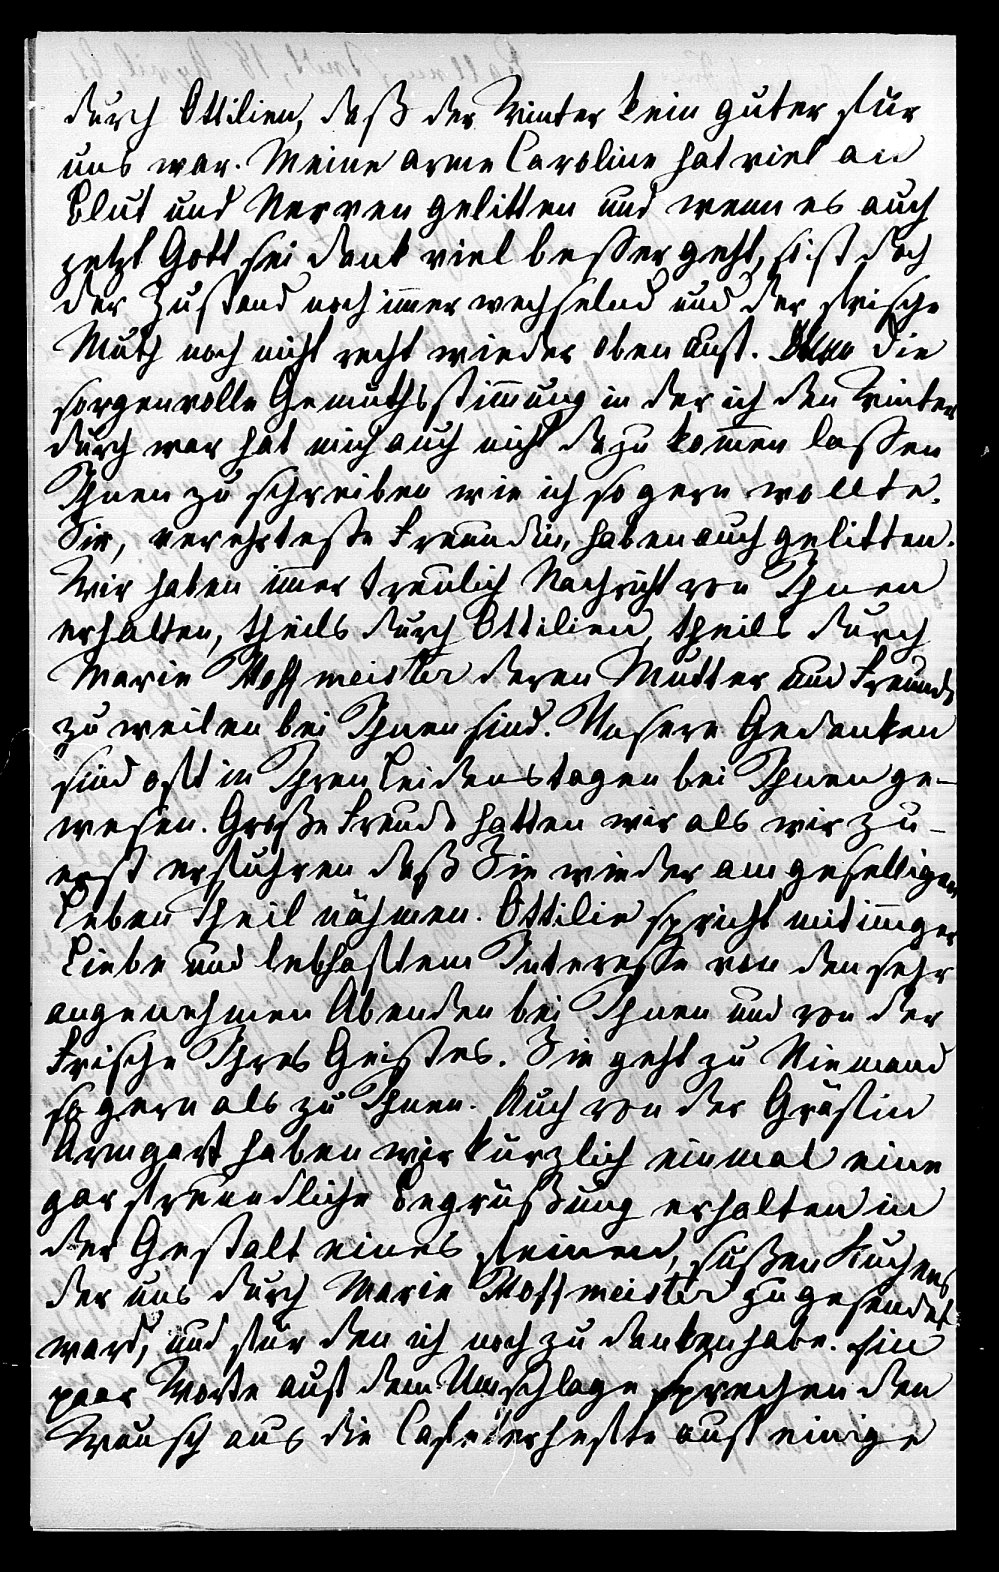 durch Ottilien, daß der Winter kein guter für
uns war. Meine arme Caroline hat viel an
Blut und Nerven gelitten und wenn es auch
jetzt Gott sei Dank viel besser geht, so ist doch
der Zustand noch im̄er wechselnd und der frische
Muth noch nicht recht wieder oben auf. Die
sorgenvolle Gemüthsstim̄ung in der ich den Winter
durch war hat mich auch nicht dazu kom̄en lassen
Ihnen zu schreiben wie ich so gern wollte.
Sie, verehrteste Freundin, haben auch gelitten.
Wir haben im̄er treulich Nachricht von Ihnen
erhalten, theils durch Ottilien, theils durch
Marie Hoffmeister deren Mutter und Freunde
zuweilen bei Ihnen sind. Unsere Gedanken
sind oft in Ihren Leidenstagen bei Ihnen ge-
wesen. Große Freude hatten wir als wir zu-
erst erfuhren daß Sie wieder am geselligen
Leben Theil nähmen. Ottilie spricht mit inniger
Liebe und lebhaftem Interesse von den sehr
angenehmen Abenden bei Ihnen und von der
Frische Ihres Geistes. Sie geht zu Niemand
so gern als zu Ihnen. Auch von der Gräfin
Armgart haben wir kürzlich einmal eine
gar freundliche Begrüßung erhalten in
der Gestalt eines feinen, süßen Kuchens
der uns durch Marie Hoffmeister zugesendet
ward, und für den ich noch zu danken habe. Ein
paar Worte auf dem Umschlage sprechen den
Wunsch aus die auf einige